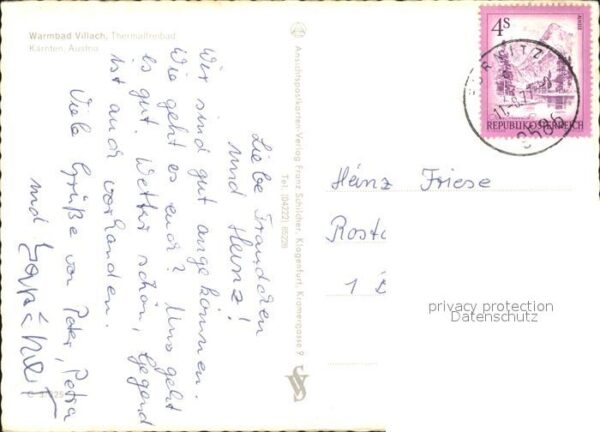 Warmbad Villach, Thermalfreibad
Kärnten, Austria
Liebe Fraudchen
und Heinz!
Wir sind gut angekommen.
Wie geht es euch? Uns geht
es gut. Wetter schön, Gegend
ist auch vorhanden.
Viele Grüße von Peter, Petra
und
Ansichtspostkarten-Verlag Franz Schilcher, Klagenfurt, Kramergasse 9
Tel. (04222) 85228
4S
REPUBLIK ÖSTERREICH
Heinz Friese
Rosto
1
privacy protection
Datenschutz